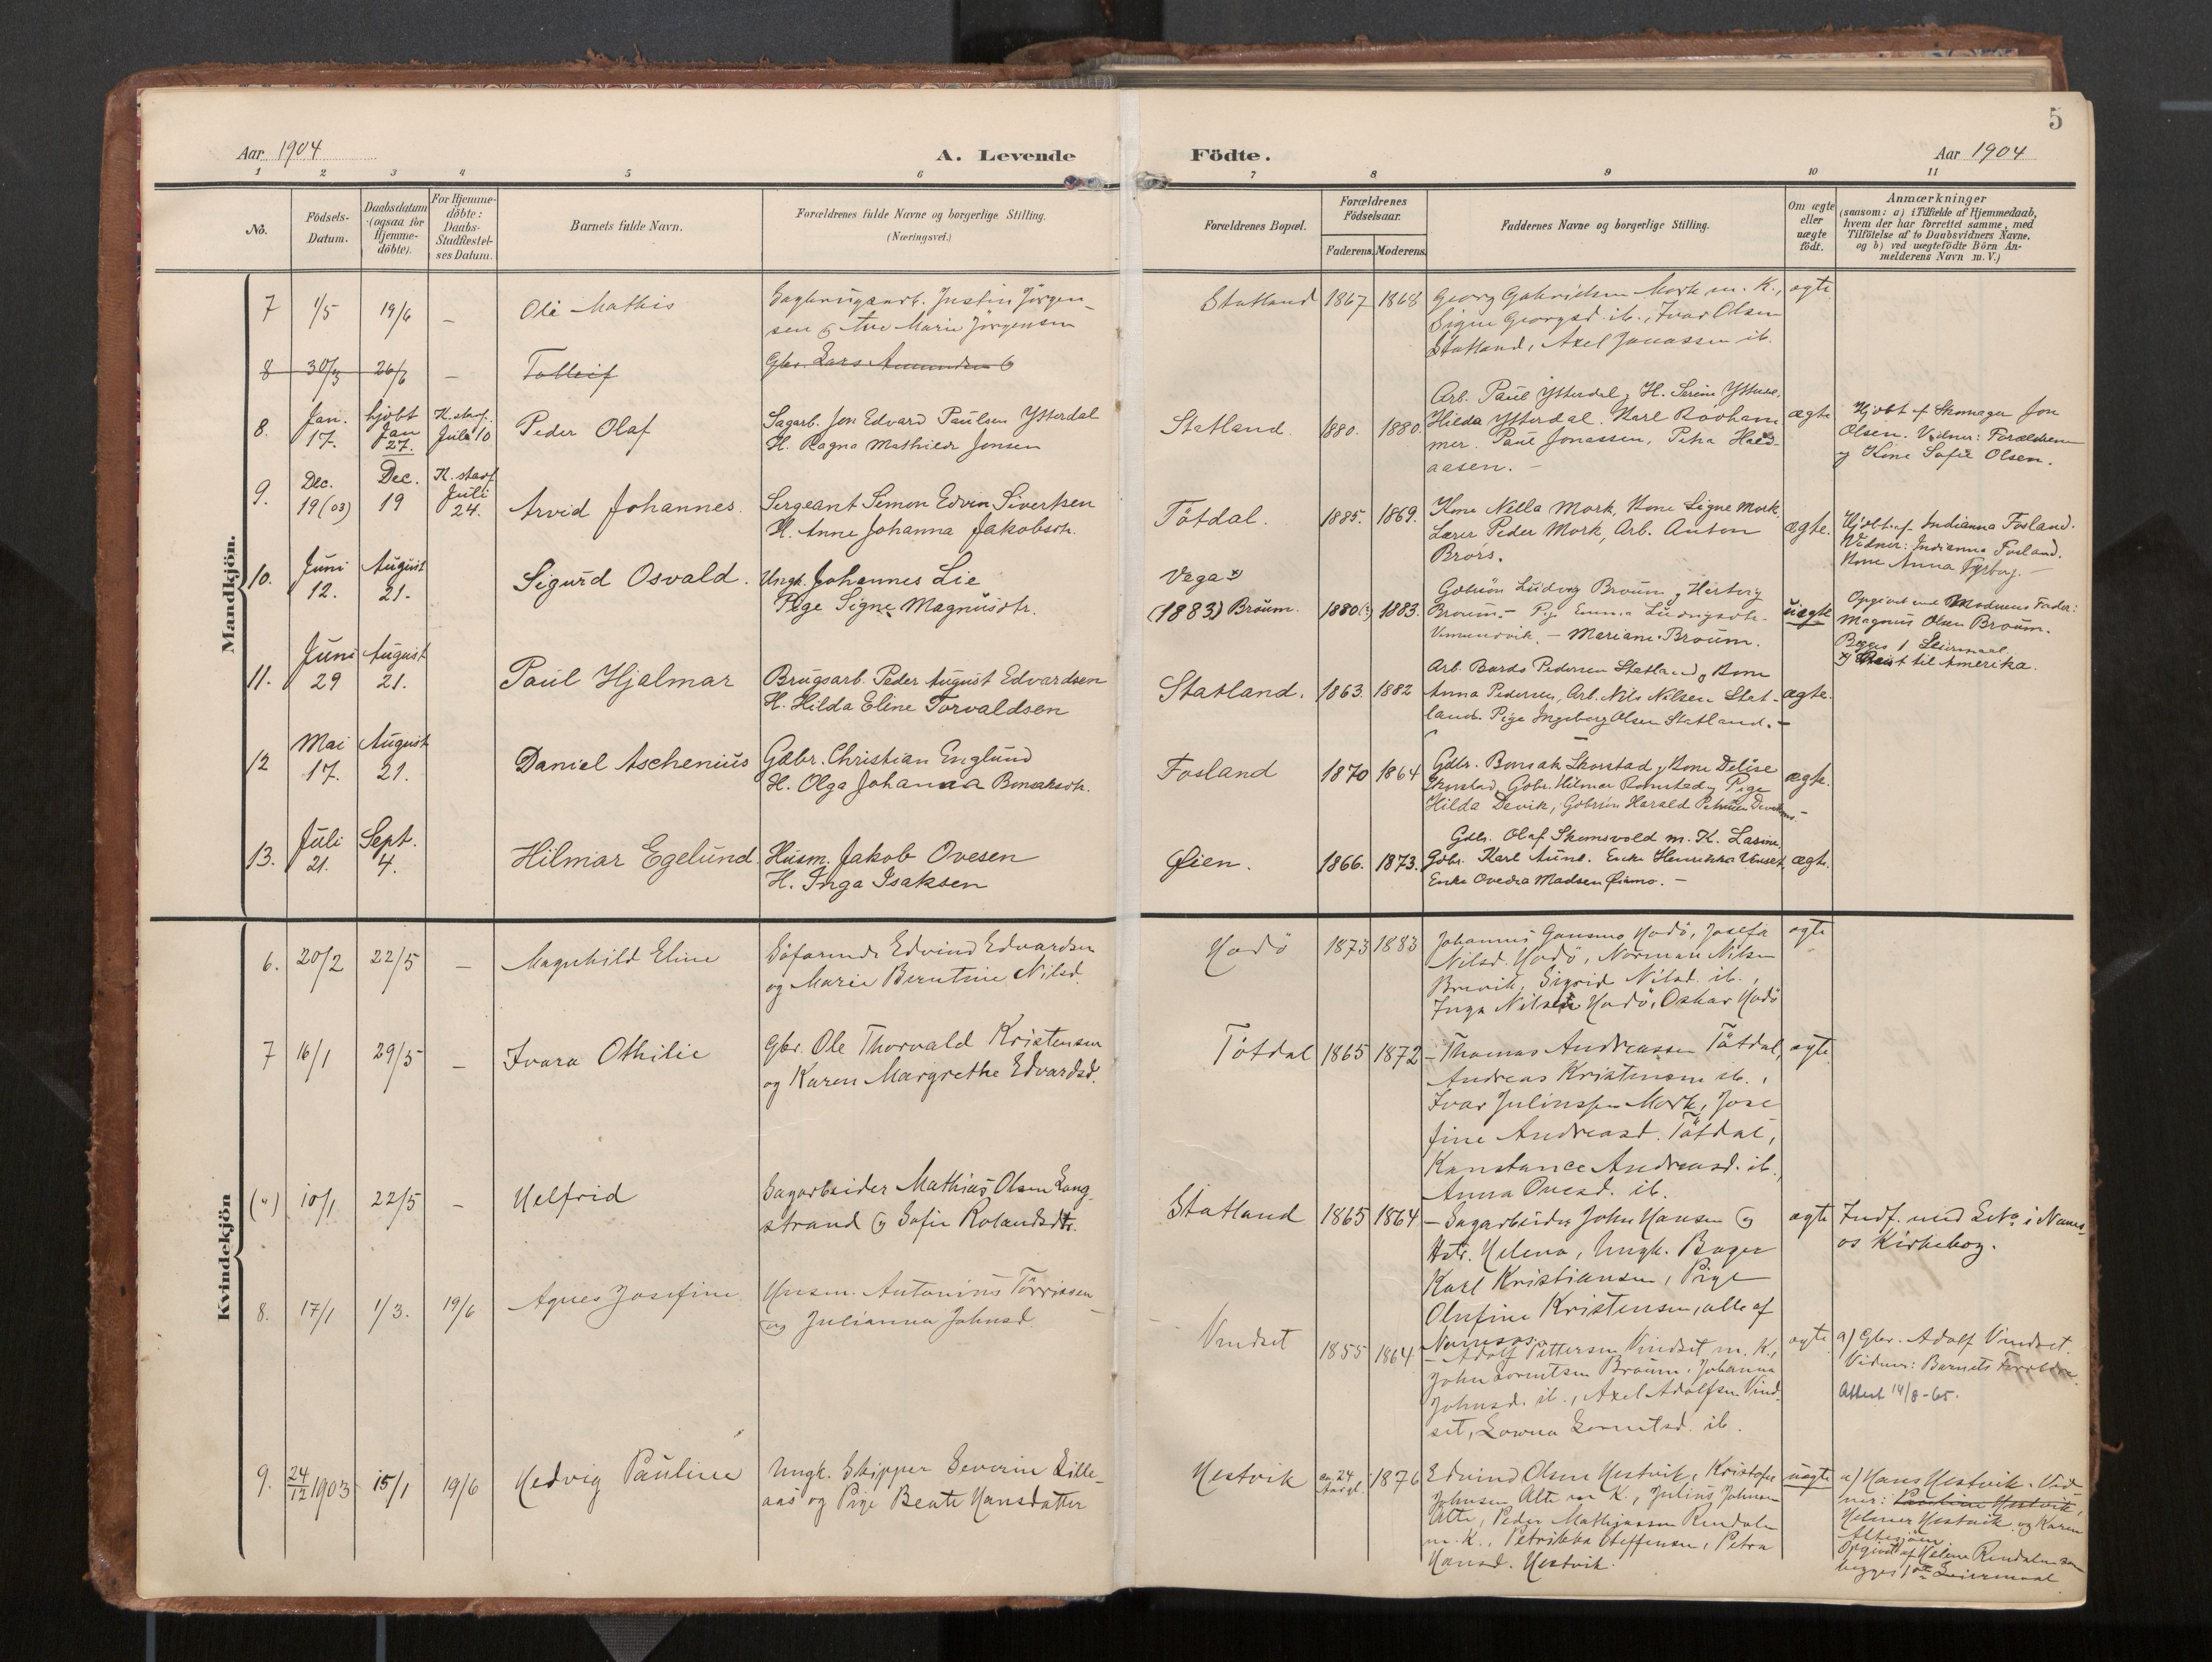 5
Aar 1904
A. Levende
Födte.
Aar 1904
1 2 3 4 5 6 7 8 9 10 11
No.
Födsels-
Datum.
Daabsdatum
(ogsaa for
Hjemme-
döbte).
For Hjemme-
döbte:
Daabs-
Stadfæstel-
ses Datum.
Barnets fulde Navn.
Forældrenes fulde Navne og borgerlige Stilling.
(Næringsvei.)
Forældrenes Bopæl.
Forældrenes
Födselsaar.
Faderens. Moderens.
Faddernes Navne og borgerlige Stilling.
Om ægte
eller
uægte
födt.
Anmærkninger
(saasom: a) i Tilfælde af Hjemmedaab,
hvem der har forrettet samme, med
Tilföielse af to Daabsvidners Navne,
og b) ved uægtefödte Börn An-
melderens Navn m. V.)
Mandkjön.
7 1/5 19/6 – Ole Mathis
Sagbrugsarb. Justin Jörgen-
sen og Ane Marie Jörgensen
Statland 1867 1868
Georg Gabrielsen Mork m. K.,
Signe Georgsd. ib., Ivar Olsen
Statland, Axel Jonassen ib.
ægte
8 30/3 26/6 – Tolleif
Gbr. Lars Amundsen og
8. Jan. 17. hjdbt Jan 27. K. staf. Juli 10
Peder Olaf
Sagarb. Jon Edvard Paulsen Ytterdal
H. Ragna Mathilde Jonsen
Statland. 1880. 1880.
Arb. Paul Ytterdal, H. Serine Ytterd.
Hilda Ytterdal. Karl Rödham
mer. Paul Jonassen, Petra Hald-
aasen. –
ægte
Hjdbt af Skomager Jon
Olsen. Vidner: Forældrene
og Kone Sofie Olsen.
9. Dec. 19 (03) Dec. 19 K. staf Juli 24.
Arvid Johannes.
Sergeant Simon Edvin Sivertsen
H. Anne Johanna Jakobsdtr.
Tötdal. 1885. 1869.
Kone Nella Mork, Kone Signe Mork,
Lærer Peder Mork, Arb. Anton
Brörs.
ægte.
Hjdbt. af Indianna Fosland.
Vidner: Indianna Fosland.
Kone Anna Fyrberg. –
10. Juni 12. August 21.
Sigurd Osvald.
Ungk. Johannes Lie
Pige Signe Magnusdtr.
Vega x)
(1883) Braum. 1880(?) 1883.
Gdbrsön Ludvig Braum, Hertvig
Braum. – Pige Emma Ludvigsdtr.
Vemundvik. – Mariane Braum.
uægte
Opgivet ved Moderens Fader:
Magnus Olsen Braum.
Begges 1 Leiermaal.
x) Reist til Amerika.
11. Juni 29 August 21.
Paul Hjalmar
Brugsarb. Peder August Edvardsen
H. Hilda Eline Torvaldsen
Statland. 1863. 1882
Arb. Bardo Pedersen Statland, Kone
Anna Pedersen, Arb. Nils Nilsen Stat-
land. Pige Ingeborg Olsen Statland. –
ægte.
12 Mai 17. August 21.
Daniel Aschenius
Gdbr. Christian Englund
H. Olga Johanna Bonsaksdtr.
Fosland 1870 1864
Gdbr. Bonsak Skorstad, Kone Delise
Skorstad, Gdbr. Hilmar Ramstad, Pige
Hilda Devik, Gdbrsön Harald Petersen
ægte.
13. Juli 21. Sept. 4.
Hilmar Egelund.
Husm. Jakob Ovesen
H. Inga Isaksen
Øien. 1866. 1873.
Gdbr. Olaf Skomsvold m. K. Lasine,
Gdbr. Karl Aune. Enke Henrikka Vinset,
Enke Ovedia Madsen Öismo. –
ægte.
Kvindekjön
6. 20/2 22/5 – Magnhild Eline
Söfarende Edvind Edvardsen
og Marie Berntine Nilsd.
Hodö 1873 1883
Johannes Gansmo Hodö, Josefa
Nilsd. Hodö, Norman Nilsen
Brevik, Sigrid Nilsd. ib.,
Inga Nilsen Hodö, Oskar Hodö
ægte
7 16/1 29/5 – Ivara Othilie
Gbr. Ole Thorvald Kristensen
og Karen Margrethe Edvardsd.
Tötdal 1865 1872
– Thomas Andreassen Tötdal,
Andreas Kristensen ib.,
Ivar Julinssen Mork, Jose
fine Andreasd. Tötdal,
Konstance Andreasd. ib.,
Anna Ovesd. ib.
ægte
(") 10/1 22/5 – Helfrid
Sagarbeider Mathias Olsen Lang-
strand og Sofie Rolandsdtr.
Statland 1865 1864
– Sagarbeider John Hansen og
Hstr. Helena, Ungk. Bager
Karl Kristiansen, Pige
Olufine Kristensen, alle af
Namsos.
ægte
Indf. med No i Nams-
os Kirkebog.
8. 17/1 1/3. 19/6 Agnes Josefine
Husm. Antonius Törrissen
og Julianna Johnsd.
Vindset 1855 1864
– Adolf Pettersen Vindset m. K.,
John Lorentsen Braum, Johanna
Johnsd. ib., Axel Adolfsen Vind-
set, Lovna Lorentsd. ib.
ægte
a) Gbr. Adolf Vindset.
Vidner: Barnets Forældre.
Attest 14/8-65.
9. 24/12 1903 15/1 19/6 Hedvig Pauline
Ungk. Skipper Severin Lille-
aas og Pige Beate Hansdatter
Hestvik ca. 24 Aar gl. 1876
Edvind Olsen Hestvik, Kristofer
Johnsen Alte m K., Julius Johnsen
Alte, Peder Mathiassen Rendalen
m. K., Petrikka Steffensen, Petra
Hansd. Hestvik.
uægte
a) Hans Hestvik. Vid-
ner: Pauline Hestvik,
Helmer Hestvik og Karen
Altesjöen
Opgivet af Helene Rendalen som
begges 1ste Leiermaal